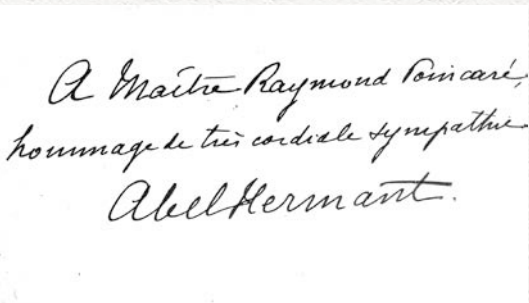 A Maître Raymond Poincaré,
hommage de très cordiale sympathie
Abel Hermant.